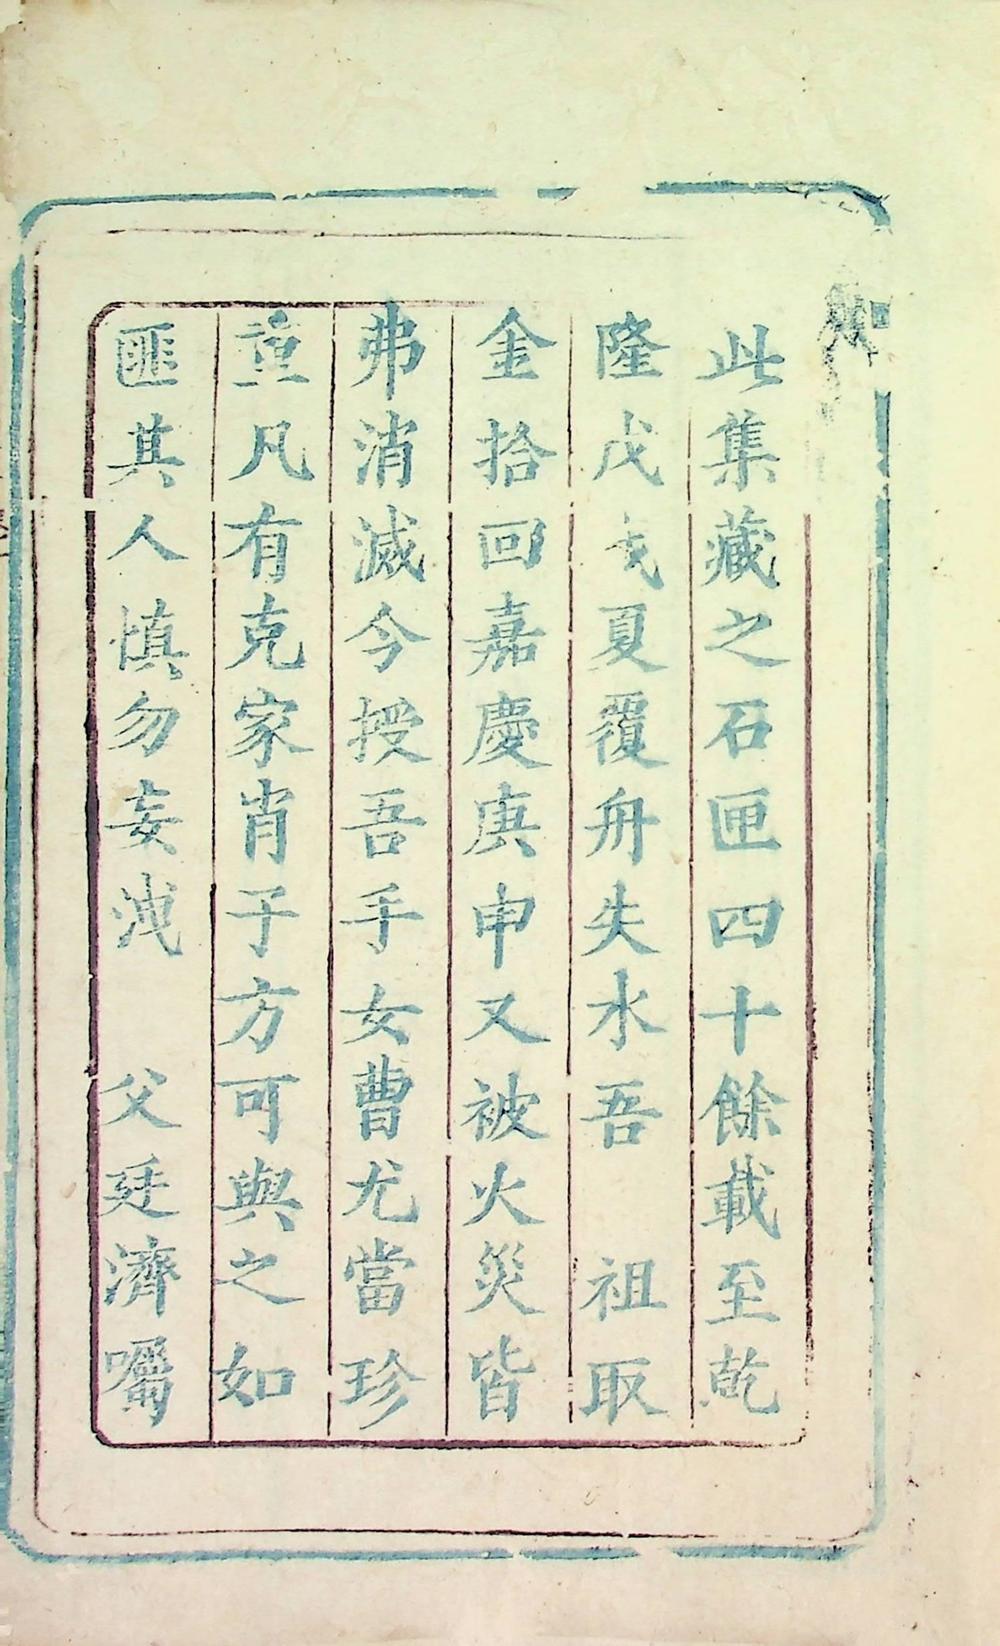 此集藏之石匣四十餘載至乾
隆戊夏覆舟失水吾 祖取
金拾回嘉慶庚申又被火災皆
弗消滅今授吾手女曹尤當珍
重凡有克家肖子方可與之如
匪其人慎勿妄洩 父廷濟囑